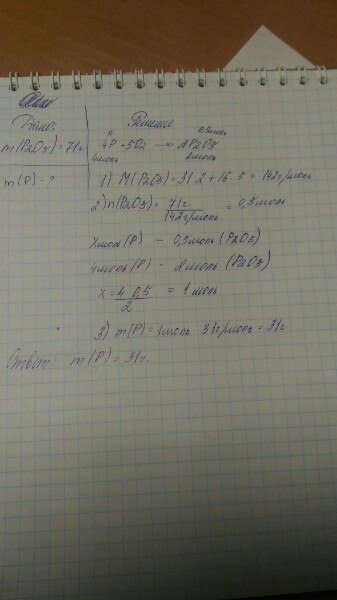 Дано:
Решение
m(P2O5)=71г
x 0,5моль
4P + 5O2 → 2P2O5
4моль 2моль
m(P)-?
1) M(P2O5)=31·2+16·5=142г/моль
2) n(P2O5)= 71г/142г/моль = 0,5моль
Xмоль(P) - 0,5моль(P2O5)
4моль(P) - 2моль(P2O5)
x = 4·0,5/2 = 1моль
3) m(P)=1моль·31г/моль=31г
Ответ: m(P)=31г.